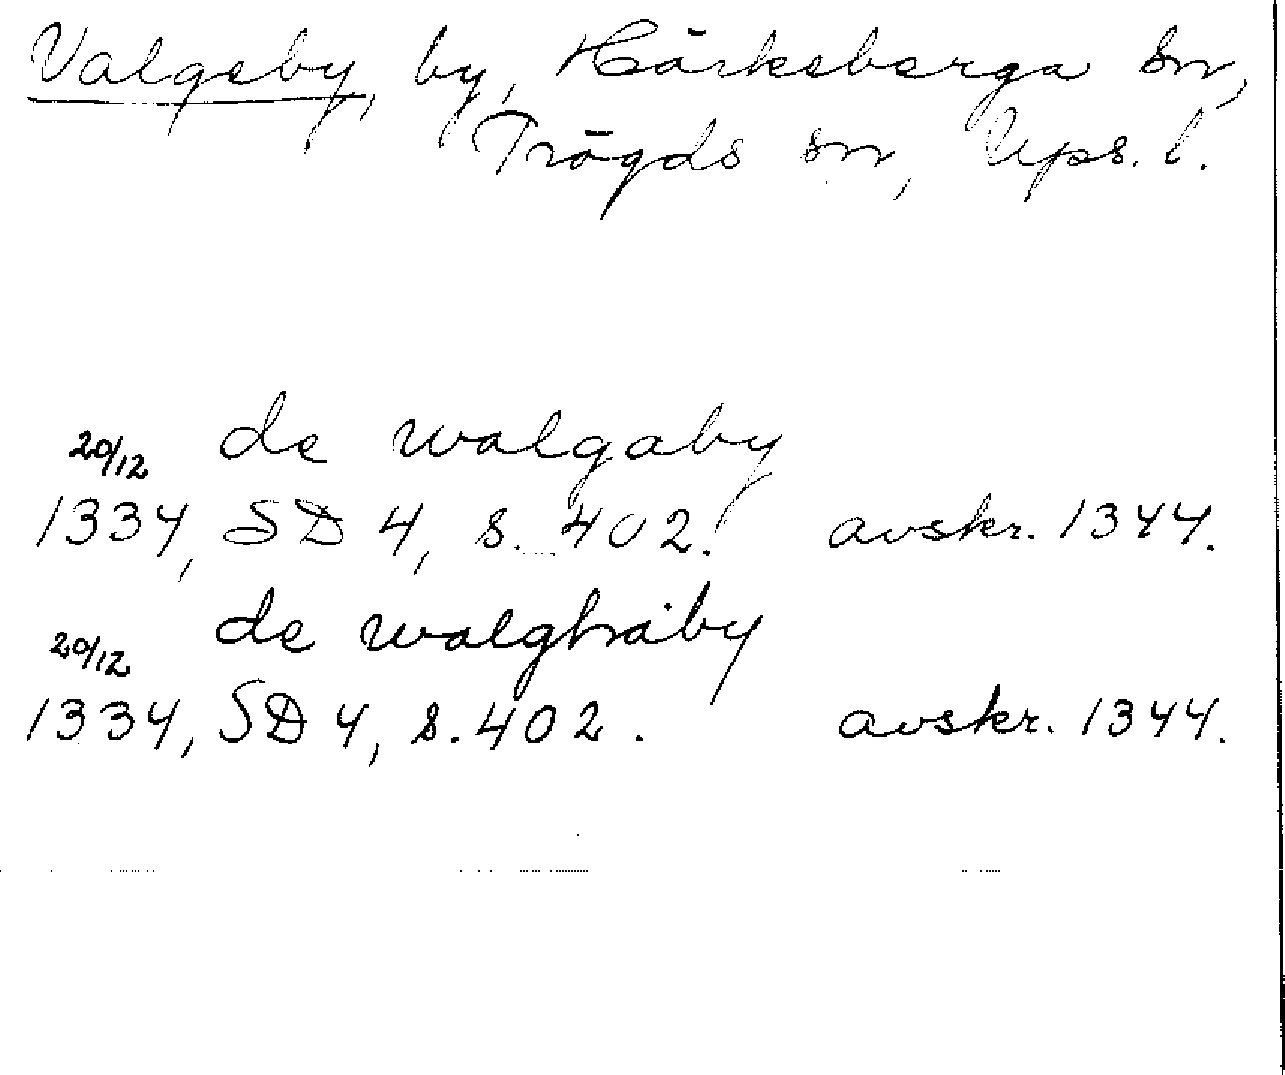 Valgeby, by, Härkeberga sn,
Trögds sn, Ups. l.
20/12 de walgaby
1334, SD 4, s. 402. avskr. 1344.
20/12 de walghaby
1334, SD 4, s. 402. avskr. 1344.